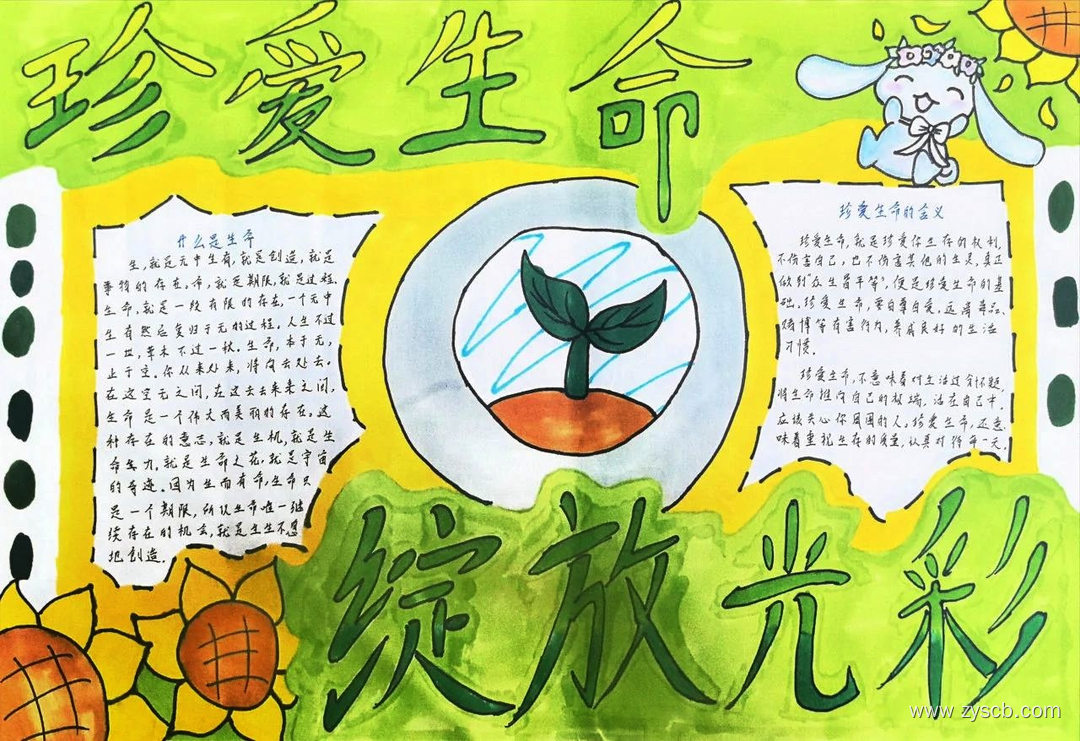 珍爱生命
什么是生命
生,就是无中生有,就是创造,就是
事物的存在。命,就是期限,就是过程。
生命,就是一段有限的存在,一个无中
生有然后复归于无的过程。人生不过
一世,草木不过一秋。生命,本于无,
止于空。你从来处来,将向去处去。
在这空无之间,在这去去来来之间,
生命是一个伟大而美丽的存在。这
种存在的意志,就是生机,就是生
命生力,就是生命之花,就是宇宙
的奇迹。因为生而有命,生命只
是一个期限,所以生命唯一继
续存在的机会,就是生生不息
地创造。
珍爱生命的含义
珍爱生命,就是珍爱你生存的权利,
不伤害自己,也不伤害其他的生灵,真正
做到“众生皆平等”,便是珍爱生命的基
础。珍爱生命,要自尊自爱,远离毒品、
赌博等有害行为,养成良好的生活
习惯。
珍爱生命,不意味着对生活过分怀疑,
将生命推向自己的极端,活在自己中。
应该关心你周围的人,珍爱生命,还意
味着重视生存的质量,认真对待每一天。
绽放光彩
www.zyscb.com